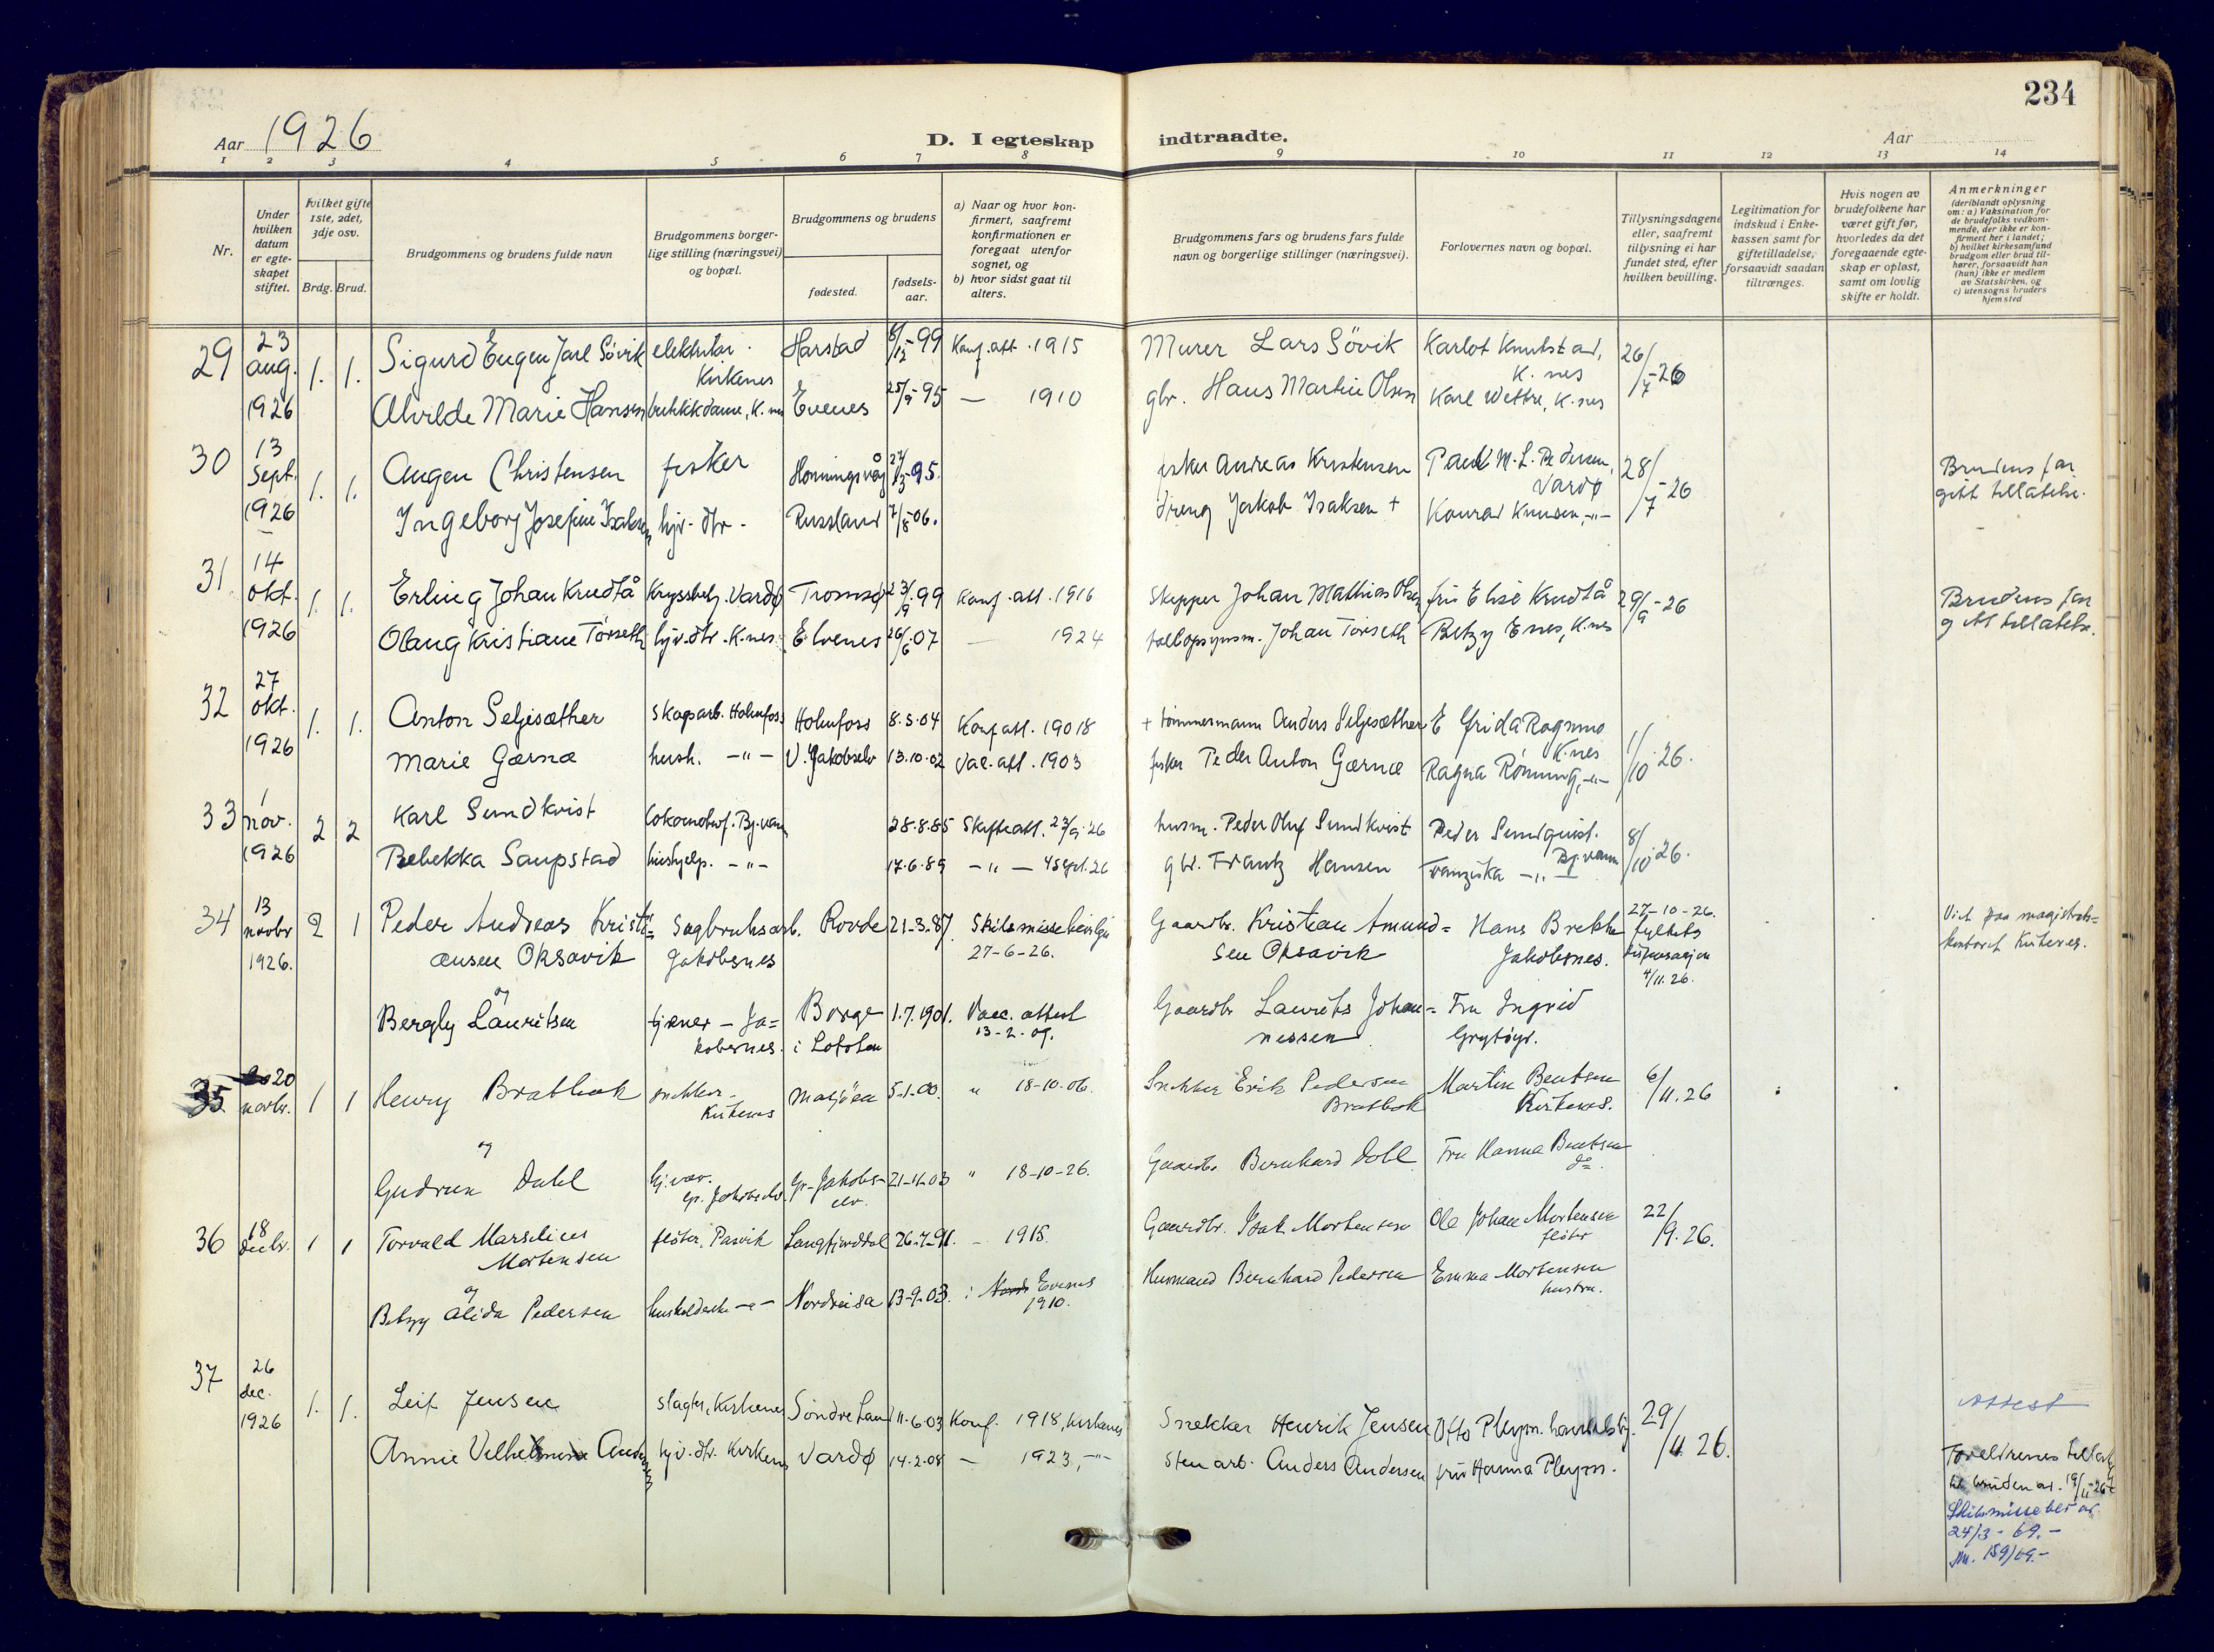 234
Aar 1926
D. I egteskap indtraadte.
Aar
1 2 3 4 5 6 7 8 9 10 11 12 13 14
Nr.
Under hvilken datum er egte- skapet stiftet.
Hvilket gifte 1ste, 2det, 3dje osv.
Brdg. Brud.
Brudgommens og brudens fulde navn
Brudgommens borger- lige stilling (næringsvei) og bopæl.
Brudgommens og brudens
fødested.
fødsels- aar.
a) Naar og hvor kon- firmert, saafremt konfirmationen er foregaat utenfor sognet, og
b) hvor sidst gaat til alters.
Brudgommens fars og brudens fars fulde navn og borgerlige stillinger (næringsvei).
Forlovernes navn og bopæl.
Tillysningsdagene eller, saafremt tillysning ei har fundet sted, efter hvilken bevilling.
Legitimation for indskud i Enke- kassen samt for giftetilladelse, forsaavidt saadan tiltrænges.
Hvis nogen av brudefolkene har været gift før, hvorledes da det foregaaende egte- skap er opløst, samt om lovlig skifte er holdt.
Anmerkninger (deriblandt oplysning om: a) Vaksination for de brudefolks vedkom- mende, der ikke er kon- firmert her i landet; b) hvilket kirkesamfund brudgom eller brud til- hører, forsaavidt han (hun) ikke er medlem av Statskirken, og c) utensogns bruders hjemsted
29 23 aug. 1926 1. 1. Sigurd Eugen Jarl Søvik elektriker. Kirkenes Harstad 8/12-99 Konf. att. 1915 Murer Lars Søvik Karlot Knutstad, K.nes 26/7-26
Alvilde Marie Hansen butikkdame, K.nes Evenes 25/9-95 — 1910 gbr. Hans Martin Olsen Karl Wettre, K.nes
30 13 Sept. 1926 1. 1. Augen Christensen fisker Honningsvåg 27/3-95. fisker Andreas Kristensen Paul M. L. Pedersen, Vardø 28/7-26 Brudens far gitt tillatelse.
Ingeborg Josefine Isaksen hjv. dtr. Russland 7/8-06. dreng Jakob Isaksen + Konrad Knusen, -"-
31. 14 okt. 1926 1. 1. Erling Johan Knudtå Kryssbetj. Vardø Tromsø 23/9 99 Konf. att. 1916 Skipper Johan Mathias Olsen fru Elise Knudtå 29/9-26 Brudens far gitt tillatelse.
Olaug Kristiane Tørseth hjv. dtr. K.nes. Elvenes 26/6 07 — 1924 tollopsynsm. Johan Tørseth Betzy Enes, K.nes
32 27 okt. 1926 1. 1. Anton Seljesæther skogsarb. Holmfoss Holmfoss 8.5.04 Konf att. 19018 + tømmermann Anders Seljesæther E Frida Ragnmo K.nes 1/10 26.
Marie Gærnæ hush. -"- V. Jakobselv 13.10.02 Vac. att. 1903 fisker Peder Anton Gærnæ Ragna Rønning, -"-
33 1 nov. 1926 2 2 Karl Sundkvist Bj.vann 28.8.85 Skifteatt. 23/9 26 husm. Peder Oluf Sundkvist Peder Sundquist. Bj.vann 8/10 26.
Rebekka Saupstad hushjelp. -"- 17.6.89 -"- 4 sept. 26 gbr. Frantz Hansen Franziska -"-
34 13 novbr 1926. 2 1 Peder Andreas Kristi= ansen Oksavik Sagbruksarb. Jakobsnes Rovde 21-3.87. Skilsmissebevilgn 27-6-26. Gaardbr. Kristian Amund= sen Oksavik Hans Brekke Jakobsnes. 27-10-26. fylkets dispensasjon 4/11.26. Viet paa magistrats= kontoret Kirkenes.
og
Bergly Lauritsen tjener - Ja= kobsnes. Borge i Lofoten 1.7.1901. Vacc. attest 13-2.09. Gaardbr Laurits Johan= nessen Fru Ingrid Grytøyr.
35 20 novbr. 1 1 Henry Bratbak snekker. Kirkenes Mosjøen 5-1.00. " 18-10-06. Snekker Erik Pedersen Bratbak Martin Bentsen Kirkenes. 6/11.26
og
Gudrun Dahl hj.vær. Gr. Jakobselv. Gr. Jakobs- elv. 21-11.03 " 18-10-26. Gaardbr. Bernhard Dahl Fru Hanna Bentsen do.
36 18 decbr. 1 1 Torvald Marselius Mortensen fløter, Pasvik Langfjorddal 26.7-91. - 1915. Gaardbr. Isak Mortensen Ole Johan Mortensen fløter 22/9.26.
og
Betsy Alida Pedersen husholderske -"- Nordreisa 13-9.03. i Evenes 1910. Husmand Bernhard Pedersen Emma Mortensen hustru.
37 26 dec. 1926 1. 1. Leif Jensen slagter, Kirkenes Søndre Land 11-6.03 Konf. 1918, Kirkenes Snekker Henrik Jensen Otto Pleym. handelsbj. 29/11 26. Attest
Annie Vilhelmine Andersen hjv. dtr. Kirkenes Vardø 14.2.08 — 1923, -"- Sten arb. Anders Andersen fru Hanna Pleym. Foreldrenes tillat. bruden av. 19/11-26
Skilsmisse bev. av
24/3 - 69.-
Jnr. 159/69.-